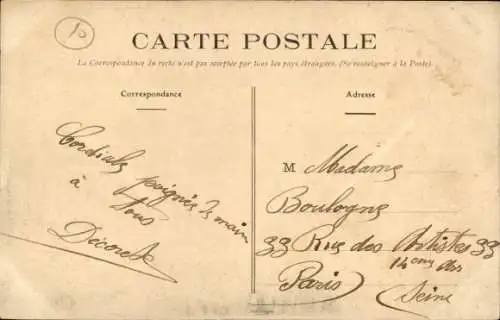 10
CARTE POSTALE
La Correspondance du recto n'est pas acceptée par tous les pays étrangers. (Se renseigner à la Poste).
Correspondance
Cordiale poignée de main
à tous
Adresse
M Madame
Boulogne
33 Rue des Artistes 33
14eme
Paris
(Seine